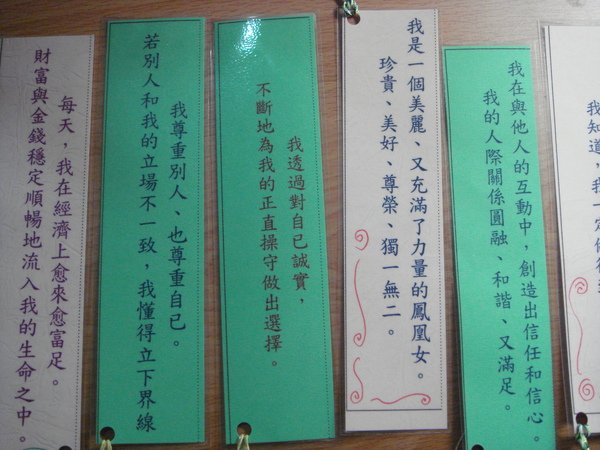 每天，我在經濟上愈來愈富足。
財富與金錢穩定順暢地流入我的生命之中。
我尊重別人、也尊重自己。
若別人和我的立場不一致，我懂得立下界線
我透過對自己誠實，
不斷地為我的正直操守做出選擇。
我是一個美麗、又充滿了力量的鳳凰女。
珍貴、美好、尊榮、獨一無二。
我在與他人的互動中，創造出信任和信心。
我的人際關係圓融、和諧、又滿足。
我知道，我一定做得